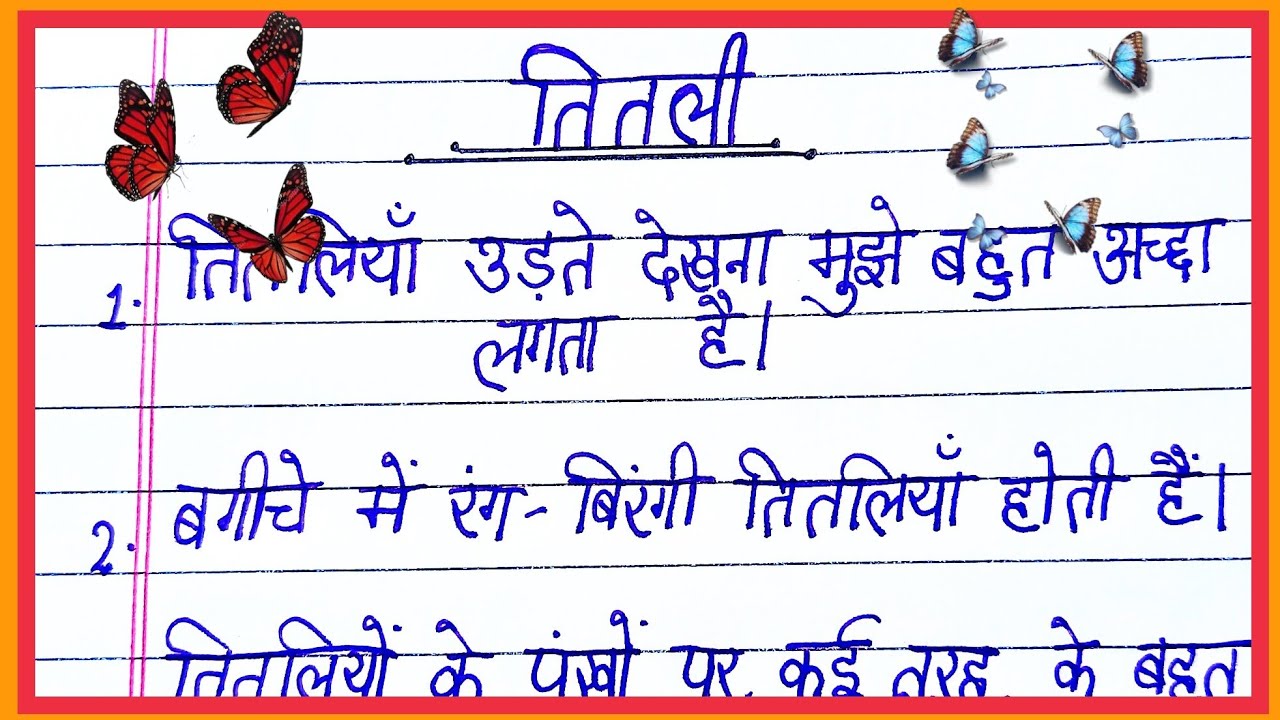 तितली
1. तितलियाँ उड़ते देखना मुझे बहुत अच्छा
लगता है।
2. बगीचे में रंग-बिरंगी तितलियाँ होती हैं।
तितलियों के पंखों पर कई तरह के बहुत